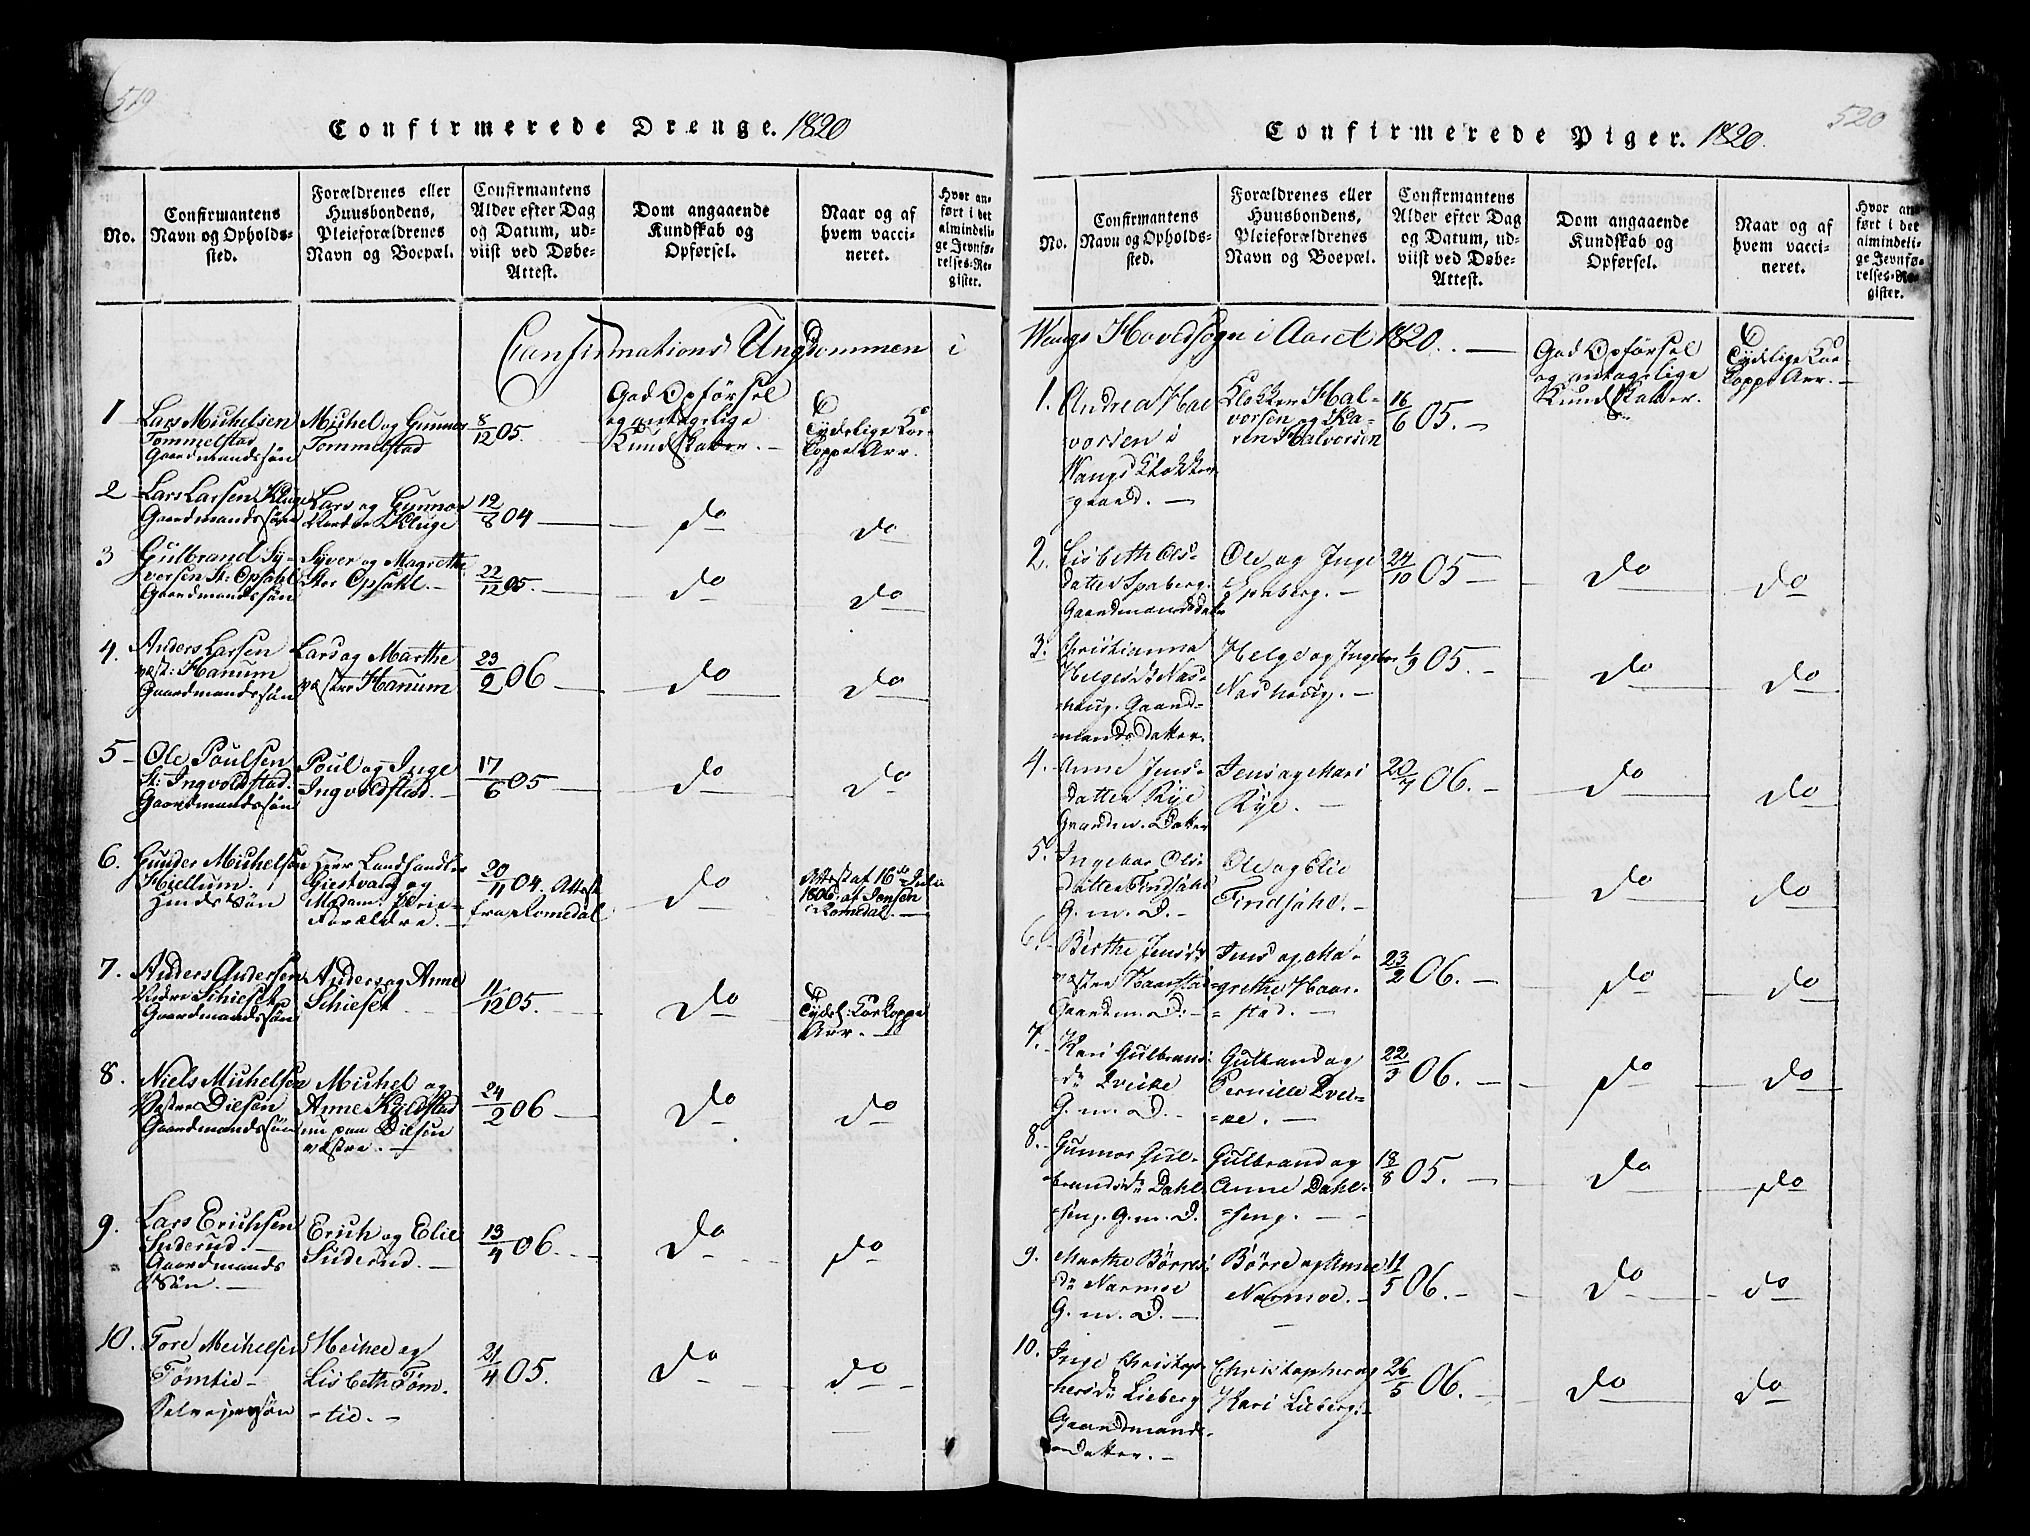 519
Confirmerede Drenge. 1820
No.
Confirmantens
Navn og Opholds-
sted.
Forældrenes eller
Huusbondens,
Pleieforældrenes
Navn og Boepæl.
Confirmantens
Alder efter Dag
og Datum, ud-
viist ved Døbe-
Attest.
Dom angaaende
Kundskab og
Opførsel.
Naar og af
hvem vacci-
neret.
Hvor an-
ført i det
almindeli-
ge Jevnfø-
relses-Re-
gister.
Confirmations Ungdommen i
1
Lars Michelsen
Tommelstad
Gaardmandssøn
Michel og Gunnor
Tommelstad
8/12 05.
God Opförsel
og antagelige
Kundskaber. -
Tydelige Koe-
Koppe Arr.
2
Lars Larsen Kluge
Gaardmandssøn
Lars og Gunnor
Kluge
19/8 04
do
do
3
Gulbrand Sy-
versen St: Opsahl
Gaardmandssön
Syver og Magrethe
Stor Opsahl. -
22/12 05.
do
do
4.
Anders Larsen
væst: Hanum
Gaardmandssön
Lars og Marthe
væstre Hanum
23/2 06
do
do
5
Ole Poulsen
St: Ingvoldstad.
Gaardmandssön
Poul og Inge
Ingvoldstad.
17/6 05
do
do
6.
Gunder Michelsøn
Hiellum.
Herr Landhandler
Giestvang og
Madam: Pleie-
Forældre. -
20/11 04. Attest
fra Romedal
do
Attest af 16de Julii
1806 af Jensen
Romedal.
7.
Anders Andersen
Schiеset
Gaardmandssön
Anders og Anne
Schieset
11/12 05.
do
Tydel: Koe Koppe
Arr.
8.
Niels Michelsen
Væstre Dielsøn
Gaardmandssön
Michel og
Anne Kyldstad
nu paa Dielsøn
væstre.
24/2 06
do
do
9.
Lars Erichsen
Suderud.
Gaardmands
Sön.
Erich og Elie
Suderud.
13/4 06.
do
do
10.
Tore Meihelsen
Tømtie
Selveiersön
Meihel og
Lisbeth Tøm-
-tie. -
21/4 05.
do
do
520
Confirmerede Piger. 1820.
No.
Confirmantens
Navn og Opholds-
sted.
Forældrenes eller
Huusbondens,
Pleieforældrenes
Navn og Boepæl.
Confirmantens
Alder efter Dag
og Datum, ud-
viist ved Døbe-
Attest.
Dom angaaende
Kundskab og
Opførsel.
Naar og af
hvem vacci-
neret.
Hvor an-
ført i det
almindeli-
ge Jevnfø-
relses-Re-
gister.
Wangs Hovedsogn i Aaret 1820.
God Opførsel
og antagelige
Kundskaber.
Tydelige Koe-
Koppe Arr.
1.
Andrea Hal
vorsen i
Wangs Klokker
=gaard.
Klokker Hal-
vorsen og Ka-
ren Halvorsen
16/6 05.
2.
Lisbeth Ols-
datter Spaberg.
Gaardmandsdatter
Ole og Inge
Spaberg.
24/10 05
do
do
3.
Christianna
Helgesdr Nas-
haug. Gaard-
mandsdatter.
Helge og Ingebor
Nashoug. -
1/9 05.
do
do
4.
Anne Jens-
datter Rye
Gaardm. Datter
Jens og Mari
Rye.
06.
do
do
5.
Ingebor Ols-
datter Findsahl
G. m. D. -
Ole og Elie
Findsahl. -
do
do
6.
Berthe Jensdr
væstre Haarstad
Gaardm. D. -
Jens og Ma-
grethe Haar-
=stad. -
23/2 06.
do
do
7.
Kari Gulbrands
dr Qvelke
G. m. D. -
Gulbrand og
Pernille Qvel-
=ke. -
22/3 06.
do
do
8.
Gunnor Gul-
brandsdr Dahl-
=seng. G. m. D.
Gulbrand og
Anne Dahl-
=seng.
18/8 05.
do
do
9.
Marthe Børres
dr Narmoe
G. m. D. -
Børre og Anne
Narmoe. -
11/5 06.
do
do
10.
Inge Christop-
hersdr Lieberg
Gaardmands-
=datter. -
Christopher og
Kari Lieberg.
26/5 06.
do
do